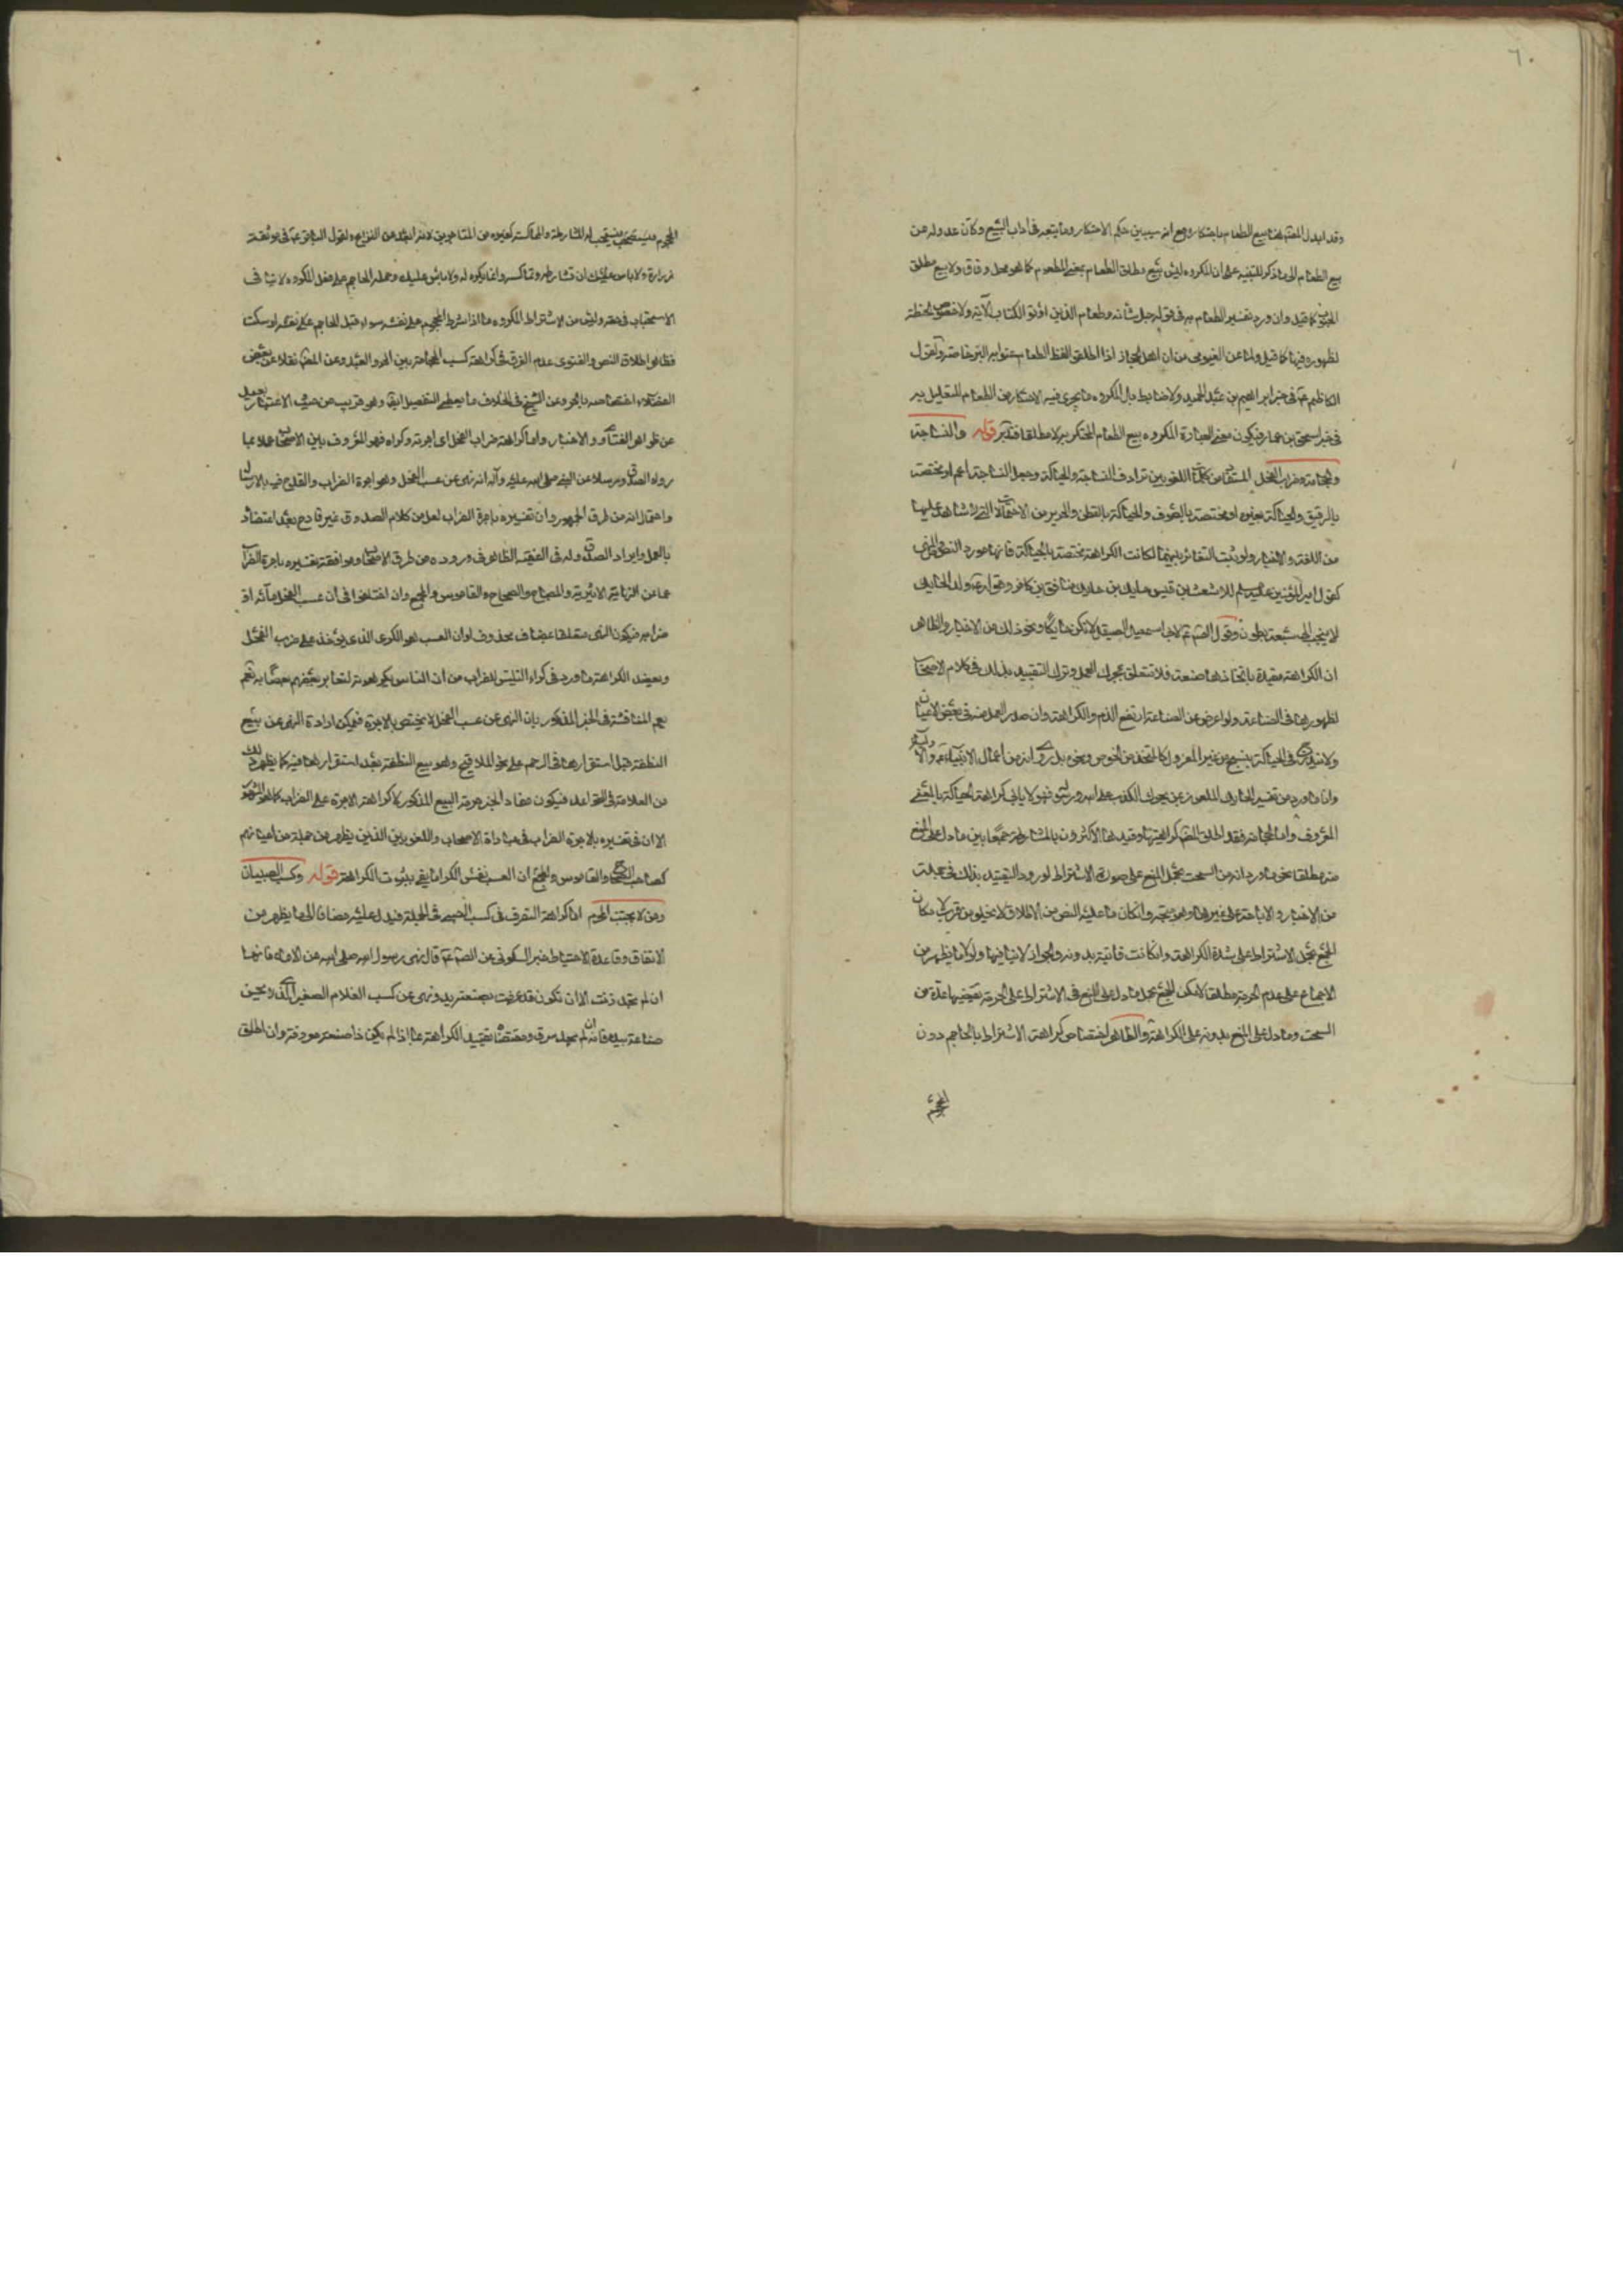 ٦٠
وقد ابدل المصّ هنا بيع الطعام باحتكاره مع انه سيبين حكم الاحتكار وما يتجه في اداب البيع وكان عدوله من
بيع الطعام الى ما ذكر للتنبيه على ان المكروه ليس بيع مطلق الطعام بمعنى المطعوم كما هو محل وفاق ولا بيع مطلق
كما قيل وان ورد تفسير الطعام به في قوله جل شانه وطعام الذين اوتوا الكتاب الآية ولا خصوص الحنطة
لظهوره فيها كما قيل ولما عن الفيومي من ان اهل الحجاز اذا اطلقوا لفظ الطعام عنوا به البر خاصة ولقول
الكاظم ع في خبر ابراهيم بن عبد الحميد ولا ضابط بل المكروه ما يجري فيه الاحتكار من الطعام للتعليل به
في خبر اسحق بن عمار فيكون معنى العبارة المكروه بيع الطعام المحتكر به لا مطلقا فتدبر قوله والنساجة
والحجامة وضراب الفحل المستفاد من كلمات اللغويين ترادف النساجة والحياكة وجعل النساجة اعم او مختصة
بالرقيق والحياكة بغيره او مختصة بالصوف والحياكة بالقطن والحرير من الاحتمالات التي لا شاهد عليها
من اللغة والاخبار ولو ثبت التغاير بينهما لكانت الكراهة مختصة بالحياكة فانها مورد النص والفتوى
كقول امير المؤمنين عليه سلم للاشعث بن قيس حايك بن حايك منافق بن كافر وقوله ع ولد الحايك
لا ينجب الى سبعة بطون وقول الصّ ع لابي اسمعيل الصيقل لا تكن حايكا ونحو ذلك من الاخبار والظاهر
ان الكراهة مقيدة باتخاذها صنعة فلا تتعلق بمجرد العمل وترك التقييد بذلك في كلام الاصحاب
لظهورها في الصناعة ولو اعرض عن الصناعة ارتفع الذم والكراهة وان صدر العمل منه في بعض الاحيان
ولا يندرج في الحياكة نسج من غير المغزول كالمتخذ من الخوص ونحوه بل روى انه من اعمال الانبياء ع والاولياء
واما ما ورد من تفسير الحايك الملعون بمن يحوك الكذب على الله ورسوله فهو لا ينافي كراهة الحياكة بالمعنى
المعروف واما الحجامة فقد اطلق المصّ كراهتها وقيدها الاكثرون بالمشارطة جمعا بين ما دل على المنع
منه مطلقا نحو ما ورد انه من السحت بحمل المنع على صورة الاشتراط لورود التقييد بذلك في جملة
من الاخبار والاباحة على غيرها وهو متجه وان كان ما عليه النص من الاطلاق لا يخلو من قرب لامكان
الجمع بحمل الاشتراط على شدة الكراهة وان كانت ثابتة بدونه والجواز لا ينافيها ولولا ما يظهر من
الاجماع على عدم الحرمة مطلقا لامكن الجمع بحمل ما دل على المنع في الاشتراط على الحرمة
السحت وما دل على المنع بدونه على الكراهة والظاهر اختصاص كراهة الاشتراط بالحاجم دون
المحجوم
المحجوم فيستحب له المشارطة والمماكسة كغيره من المتاجرين لانه ابعد من النزاع ولقول الباقر ع في موثقة
زرارة ولا باس عليك ان تشارطه وتماكسه وانما يكره له ولا باس عليك وحمل الحاجم على فعل المكروه لا ينافي
الاستحباب في حقه وليس من الاشتراط المكروه ما اذا شرط المحجوم على نفسه سواء قبل الحاجم على نفسه او سكت
فظاهر اطلاق النص والفتوى عدم الفرق في كراهة كسب الحجامة بين الحر والعبد وعن المصّ نقلا عن بعض
الفضلاء اختصاصه بالحر وعن الشيخ في الخلاف ما يعطى التفصيل ايضا وهو قريب من حيث الاعتبار بعيد
عن ظواهر الفتاوى والاخبار واما كراهة ضراب الفحل اي اجرته وكراه فهو المعروف بين الاصحاب عملا بما
رواه الصدوق مرسلا عن النبي صلى الله عليه وآله انه نهى عن عسب الفحل وهو اجرة الضراب والقدح فيه بالارسال
واحتمال انه من طرق الجمهور وان تفسيره باجرة الضراب لعل من كلام الصدوق غير قادح بعد اعتضاد
بالعمل وايراد الصدوق له في الفقيه الظاهر في وروده من طرق الاصحاب وموافقة تفسيره باجرة الضراب
لما عن النهاية الاثيرية والمصباح والصحاح والقاموس والمجمع وان اختلفوا في ان عسب الفحل مائه او
ضرابه فيكون النهي متعلقا بمضاف محذوف او ان العسب هو الكرى الذي يؤخذ على ضرب الفحل
ويعضد الكراهة ما ورد في كراء التيس للضراب من ان الناس يكرهونه لتعاير بعضهم بعضا به نعم
يعم المناقشة في الخبر المذكور بان النهي عن عسب الفحل لا يختص بالاجرة فيمكن ارادة النهي عن بيع
النطفة قبل استقرارها في الرحم على نحو الملاقيح وهو بيع النطفة بعد استقرارها فيه كما يظهر ذلك
من العلامة في القواعد فيكون مفاد الخبر حرمة البيع المذكور لا كراهة الاجرة على الضراب كما هو المشهور
الا ان في تفسيره بالاجرة الضراب في عبارة الاصحاب واللغويين الذين يظهر من جملة من اعيانهم
كصاحب الصحاح والقاموس والمجمع ان العسب نفس الكرا ما يقي بثبوت الكراهة قوله وكسب الصبيان
ومن لا يجتنب المحرم اما كراهة التصرف في كسب الصبي في الجملة فيدل عليه مضافا الى ما يظهر من
الاتفاق وقاعدة الاحتياط خبر السكوني عن الصّ ع قال نهى رسول الله صلى الله عن الاماء فانها
ان لم تجد زنت الا ان تكون قد عرفت بصنعة يد ونهى عن كسب الغلام الصغير الذي لا يحسن
صناعة بيده فانه ان لم يجد سرق ومقتضاه تقييد الكراهة بما اذا لم يكن ذا صنعة معروفة وان اطلق